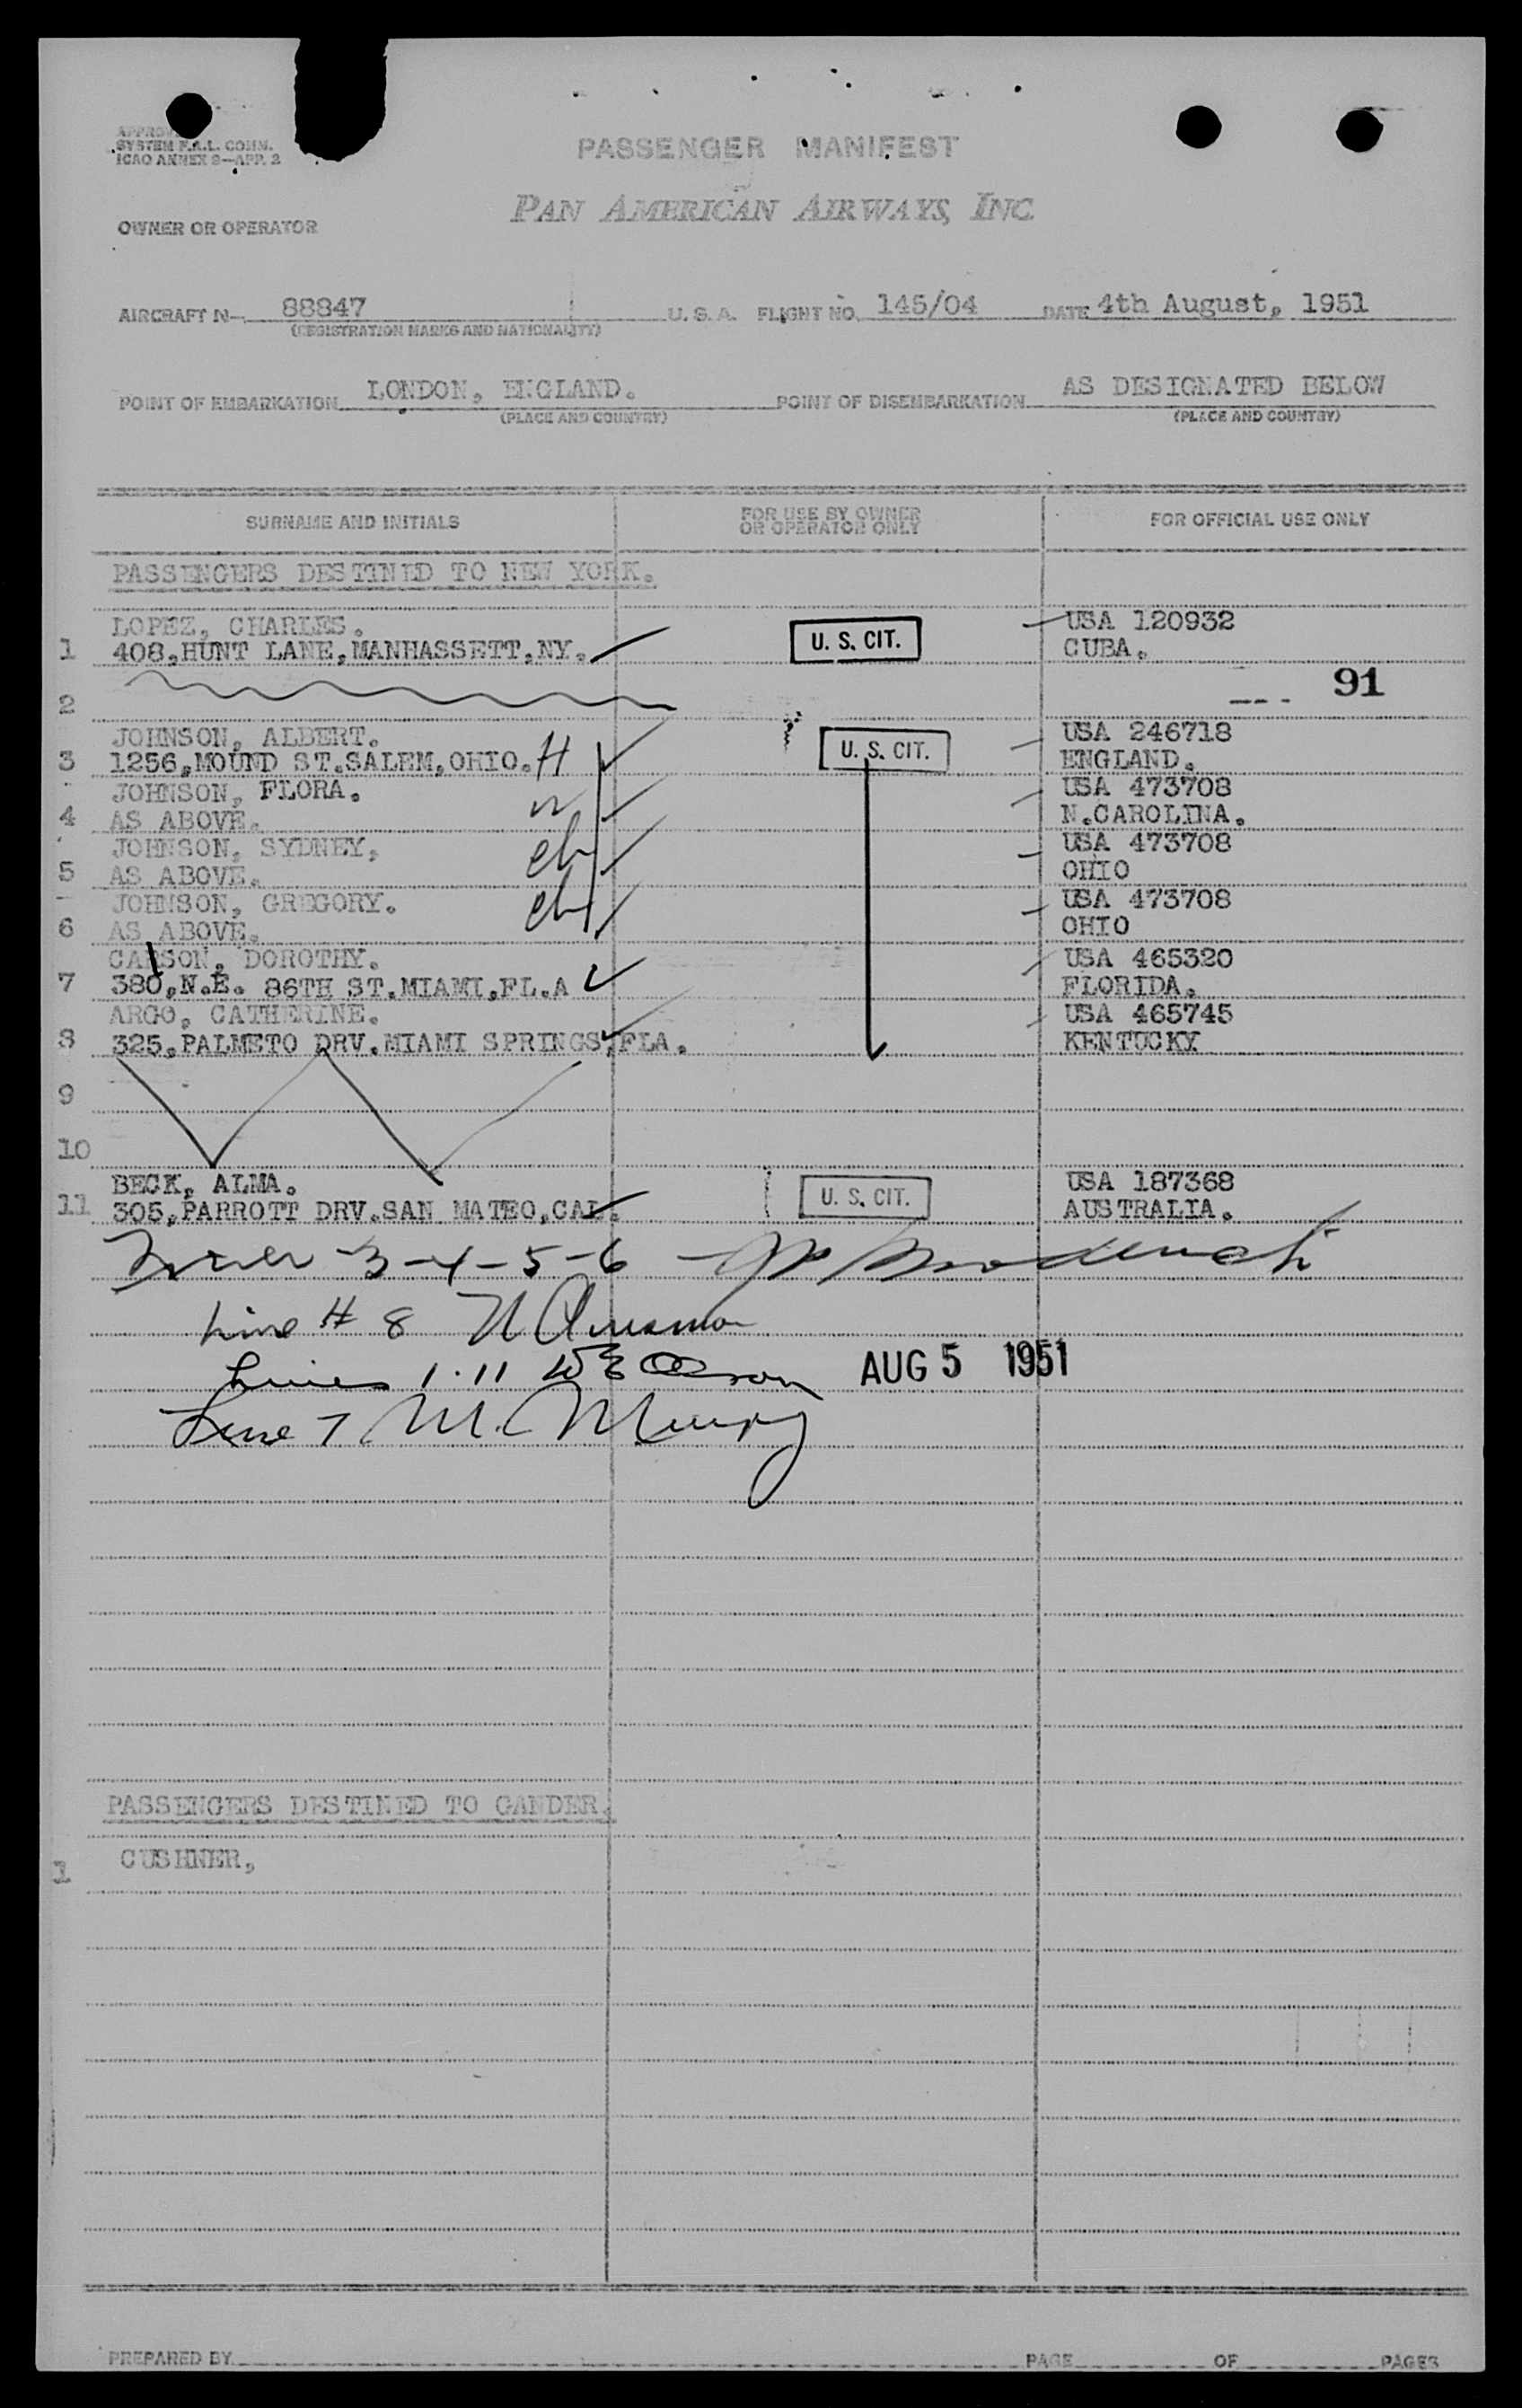 SYSTEM F.A.L. COMM.
ICAO ANNEX 9—APP. 2
PASSENGER MANIFEST
PAN AMERICAN AIRWAYS, INC.
OWNER OR OPERATOR
AIRCRAFT N— 88847 U. S. A. FLIGHT NO. 145/04 DATE 4th August, 1951
(REGISTRATION MARKS AND NATIONALITY)
POINT OF EMBARKATION LONDON, ENGLAND. POINT OF DISEMBARKATION AS DESIGNATED BELOW
(PLACE AND COUNTRY) (PLACE AND COUNTRY)
SURNAME AND INITIALS FOR USE BY OWNER OR OPERATOR ONLY FOR OFFICIAL USE ONLY
PASSENGERS DESTINED TO NEW YORK.
LOPEZ, CHARLES. USA 120932
1 408,HUNT LANE,MANHASSETT,NY. U. S. CIT. CUBA.
91
2
JOHNSON, ALBERT. USA 246718
3 1256,MOUND ST.SALEM,OHIO. H U. S. CIT. ENGLAND.
JOHNSON, FLORA. USA 473708
4 AS ABOVE. w N.CAROLINA.
JOHNSON, SYDNEY, USA 473708
5 AS ABOVE. ch OHIO
JOHNSON, GREGORY. USA 473708
6 AS ABOVE. ch OHIO
CARSON, DOROTHY. USA 465320
7 380,N.E. 86TH ST.MIAMI,FL.A FLORIDA.
ARGO, CATHERINE. USA 465745
8 325,PALMETO DRV.MIAMI SPRINGS,FLA. KENTUCKY
9
10
BECK, ALMA. USA 187368
11 305,PARROTT DRV.SAN MATEO,CAL. U. S. CIT. AUSTRALIA.
3-4-5-6
Line # 8
Lines 1.11 AUG 5 1951
Line 7
PASSENGERS DESTINED TO GANDER.
1 CUSHNER,
PREPARED BY PAGE OF PAGES